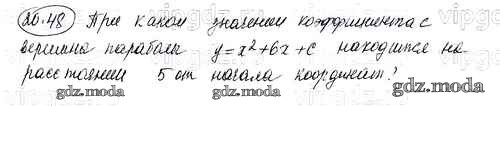 20.48 При каком значении коэффициента c
вершина параболы y=x²+6x+c находится на
расстоянии 5 от начала координат?
gdz.moda gdz.moda gdz.moda